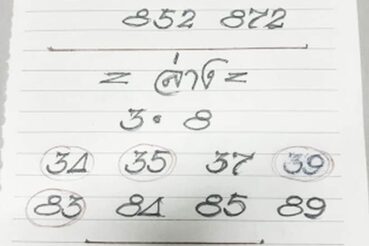 852 872
= ล่าง =
3 • 8
34 35 37 39
83 84 85 89